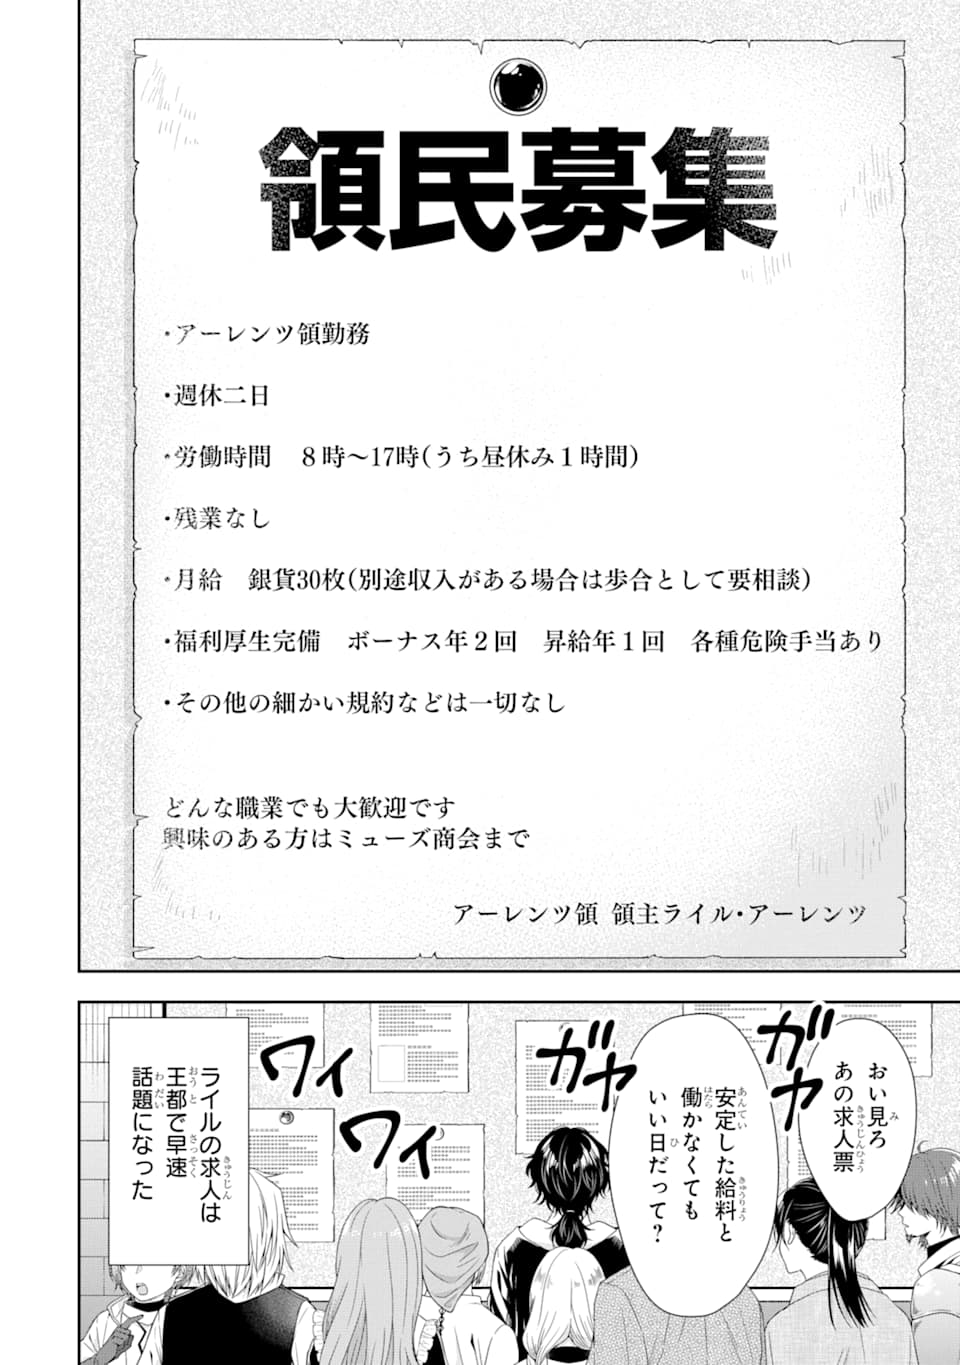 領民募集
・アーレンツ領勤務
・週休二日
・労働時間　８時～17時(うち昼休み１時間)
・残業なし
・月給　銀貨30枚(別途収入がある場合は歩合として要相談)
・福利厚生完備　ボーナス年２回　昇給年１回　各種危険手当あり
・その他の細かい規約などは一切なし
どんな職業でも大歓迎です
興味のある方はミューズ商会まで
アーレンツ領 領主ライル・アーレンツ
おい見ろ
あの求人票
ガヤ
安定した給料と
働かなくても
いい日だって？
ガヤ
ワイ
ワイ
ライルの求人は
王都で早速
話題になった